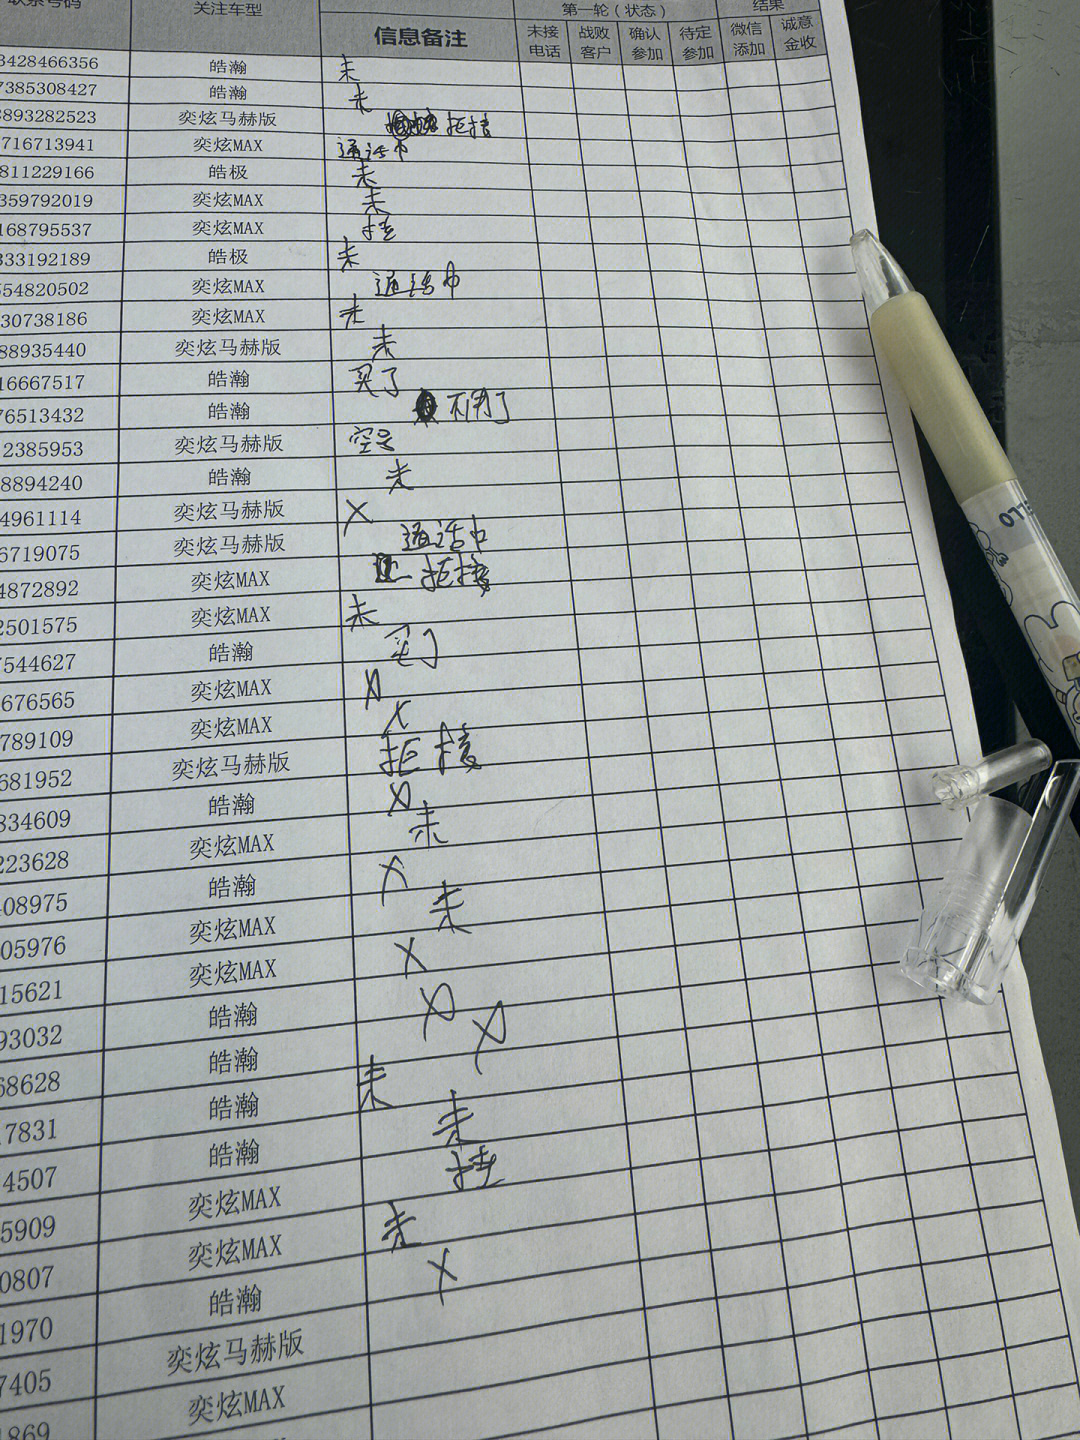 关注车型 第一轮（状态） 结果
信息备注 未接电话 战败客户 确认参加 待定参加 微信添加 诚意金收
3428466356 皓瀚 未
7385308427 皓瀚 未
893282523 奕炫马赫版 拒接
716713941 奕炫MAX 通话中
811229166 皓极 未
359792019 奕炫MAX 未
168795537 奕炫MAX 挂
333192189 皓极 未
554820502 奕炫MAX 通话中
30738186 奕炫MAX 未
88935440 奕炫马赫版 未
16667517 皓瀚 买了
76513432 皓瀚 不用了
2385953 奕炫马赫版 空号
8894240 皓瀚 未
4961114 奕炫马赫版 X
6719075 奕炫马赫版 通话中
4872892 奕炫MAX 拒接
2501575 奕炫MAX 未
7544627 皓瀚 买了
676565 奕炫MAX X
789109 奕炫MAX X
681952 奕炫马赫版 拒接
834609 皓瀚 X
223628 奕炫MAX 未
408975 皓瀚 X
05976 奕炫MAX 未
15621 奕炫MAX X
93032 皓瀚 X
68628 皓瀚 X
7831 皓瀚 未
4507 皓瀚 未
5909 奕炫MAX 挂
0807 奕炫MAX 未
1970 皓瀚 X
7405 奕炫马赫版
1869 奕炫MAX